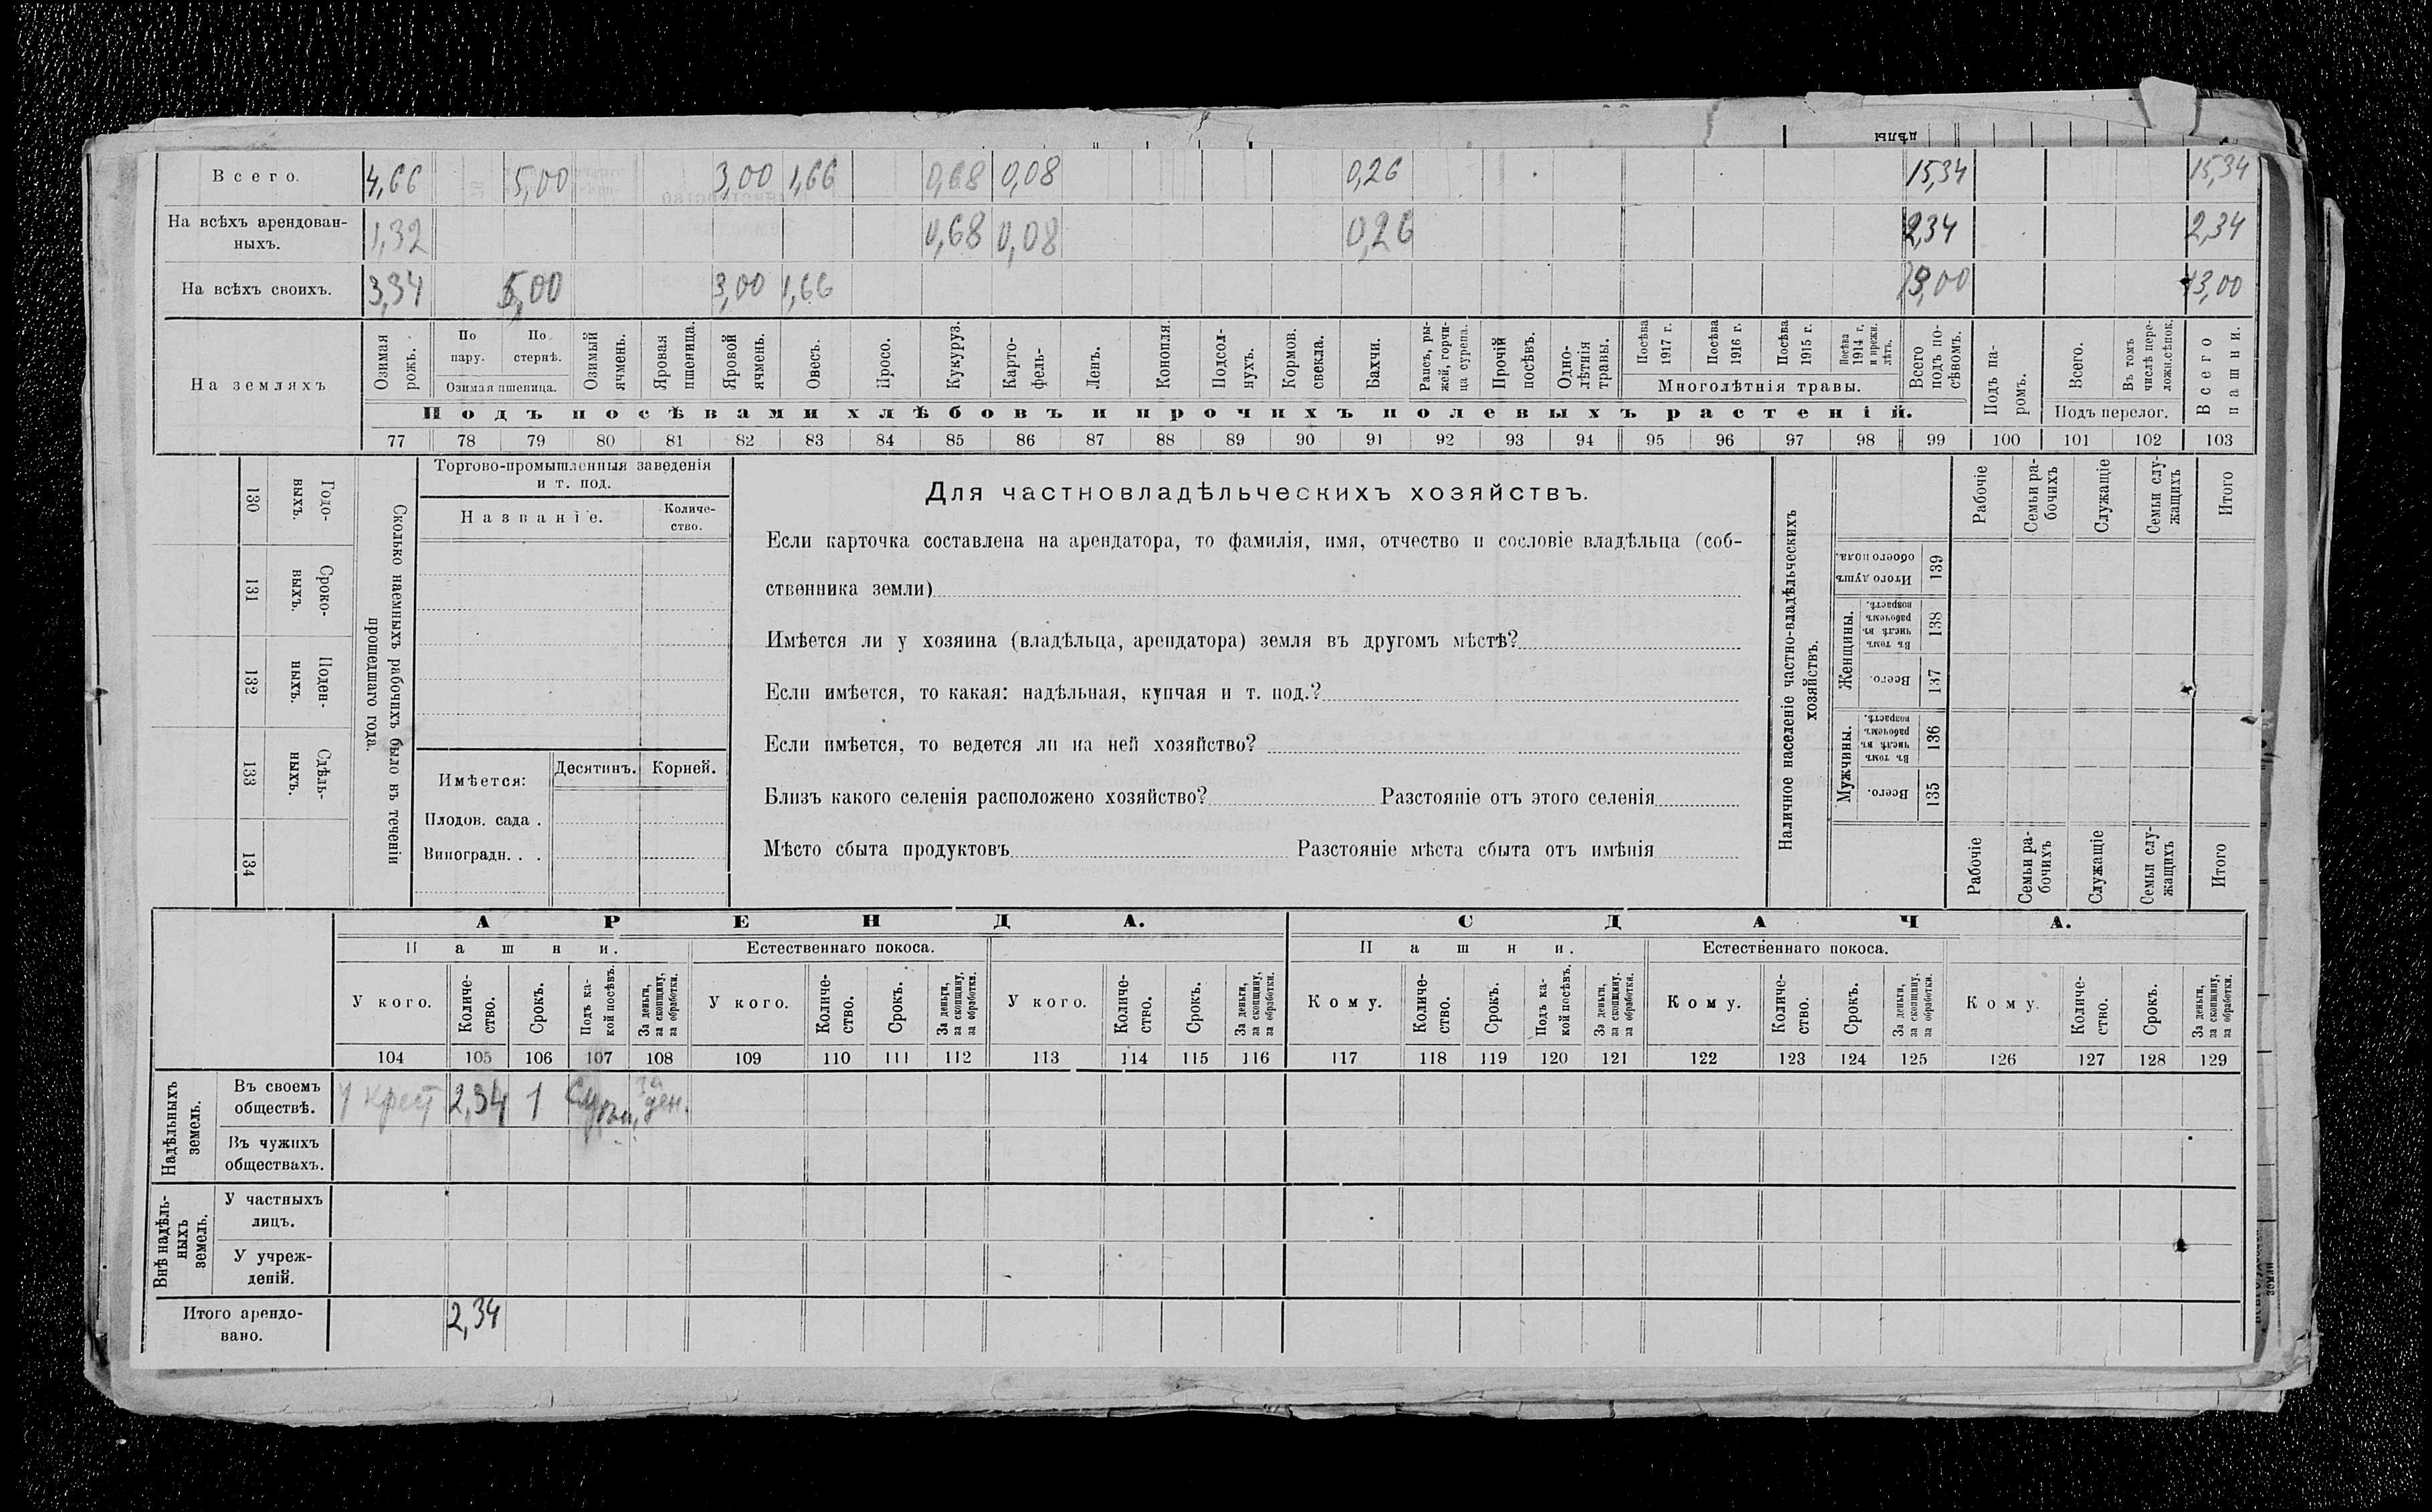 ДѢЛЫ
Всего. 4,66 5,00 3,00 1,66 0,68 0,08 0,26 15,34 15,34
На всѣхъ арендован- 1,32 0,68 0,08 0,26 2,34 2,34
ныхъ.
На всѣхъ своихъ. 3,34 5,00 3,00 1,66 13,00 13,00
На земляхъ
Озимая рожь.
По пару.
По стернѣ.
Озимая пшеница.
Озимый ячмень.
Яровая пшеница.
Яровой ячмень.
Овесъ.
Просо.
Кукуруз.
Карто-
фель-
Ленъ.
Конопля.
Подсол-
нухъ.
Кормов. свекла.
Бахчи.
Рапсъ, ры-
жей, горчи-
ца сурепа.
Прочій посѣвъ.
Одно-
лѣтнія
травы.
Посѣва 1917 г.
Посѣва 1916 г.
Посѣва 1915 г.
Посѣва 1914 г. и прежн. лѣтъ.
Многолѣтнія травы.
Всего подъ по-
сѣвомъ.
Подъ па-
ромъ.
Всего.
Въ томъ числѣ пере-
ложн.сѣнок.
Подъ перелог.
Всего пашни.
Подъ посѣвами хлѣбовъ и прочихъ полевыхъ растеній.
77 78 79 80 81 82 83 84 85 86 87 88 89 90 91 92 93 94 95 96 97 98 99 100 101 102 103
130 Годо-
ныхъ.
131 Сроко-
выхъ.
132 Поден-
ныхъ.
133 Сдѣль-
ныхъ.
134
Сколько наемныхъ рабочихъ было въ теченіи
прошедшаго года.
Торгово-промышленныя заведенія
и т. под.
Названіе.
Количе-
ство.
Имѣется: Десятинъ. Корней.
Плодов. сада .
Виноградн. . .
Для частновладѣльческихъ хозяйствъ.
Если карточка составлена на арендатора, то фамилія, имя, отчество и сословіе владѣльца (соб-
ственника земли)
Имѣется ли у хозяина (владѣльца, арендатора) земля въ другомъ мѣстѣ?
Если имѣется, то какая: надѣльная, купчая и т. под.?
Если имѣется, то ведется ли на ней хозяйство?
Близъ какого селенія расположено хозяйство? Разстояніе отъ этого селенія
Мѣсто сбыта продуктовъ Разстояніе мѣста сбыта отъ имѣнія
Наличное населеніе частно-владѣльческихъ
хозяйствъ.
Рабочіе
Семьи ра-
бочихъ
Служащіе
Семьи слу-
жащихъ
Итого
Итого душъ обоего пола. 139
Женщины.
Въ томъ числѣ въ рабочемъ возрастѣ. 138
Всего. 137
Мужчины.
Въ томъ числѣ въ рабочемъ возрастѣ. 136
Всего. 135
Рабочіе
Семьи ра-
бочихъ
Служащіе
Семьи слу-
жащихъ
Итого
АРЕНДА. СДАЧА.
Пашни. Естественнаго покоса. Пашни. Естественнаго покоса.
У кого.
Количе-
ство.
Срокъ.
Подъ ка-
кой посѣвъ.
За деньги,
за скопщину,
за обработки.
У кого.
Количе-
ство.
Срокъ.
За деньги,
за скопщину,
за обработки.
У кого.
Количе-
ство.
Срокъ.
За деньги,
за скопщину,
за обработки.
Кому.
Количе-
ство.
Срокъ.
Подъ ка-
кой посѣвъ.
За деньги,
за скопщину,
за обработки.
Кому.
Количе-
ство.
Срокъ.
За деньги,
за скопщину,
за обработки.
Кому.
Количе-
ство.
Срокъ.
За деньги,
за скопщину,
за обработки.
104 105 106 107 108 109 110 111 112 113 114 115 116 117 118 119 120 121 122 123 124 125 126 127 128 129
Надѣльныхъ
земель.
Въ своемъ
обществѣ.
У крест 2,34 1 за ден.
Въ чужихъ
обществахъ.
Внѣ надѣль-
ныхъ
земель.
У частныхъ
лицъ.
У учреж-
деній.
Итого арендо-
вано.
2,34